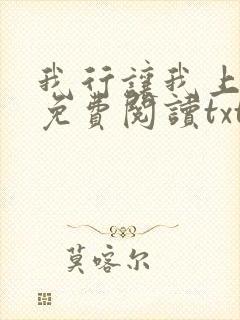 我行讓我上
免費閱讀txt
莫喀尔